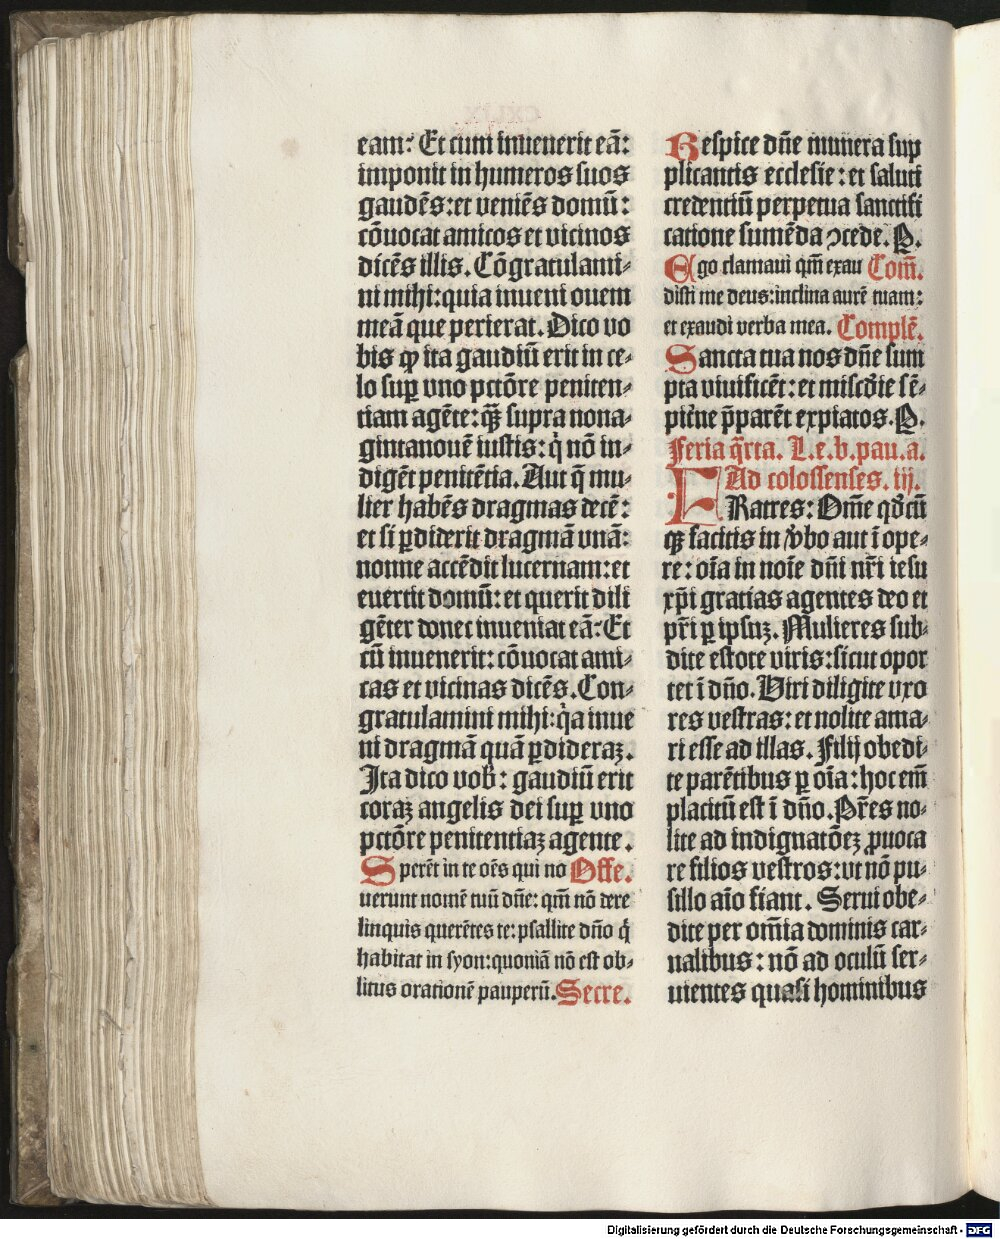 eam: Et cum inuenerit eā:
imponit in humeros suos
gaudēs: et veniēs domū:
cōuocat amicos et vicinos
dicēs illis. Cōgratulami-
ni mihi: quia inueni ouem
meā que perierat. Dico vo
bis ꝙ ita gaudiū erit in ce-
lo suꝑ vno pctōre peniten-
tiam agēte: qꝫ̄ supra nona-
gintanouē iustis: q̇ nō in-
digēt penitētia. Aut q̄ mu-
lier habēs dragmas decē:
et si ꝑdiderit dragmā vnā:
nonne accēdit lucernam: et
euertit domū: et querit dili
gēter donec inueniat eā: Et
cū inuenerit: cōuocat ami-
cas et vicinas dicēs. Con-
gratulamini mihi: q̇a inue
ni dragmā quā ꝑdideraꝫ.
Ita dico vob̄: gaudiū erit
coraꝫ angelis dei suꝑ vno
pctōre penitentiaꝫ agente.
Sperēt in te oēs qui no Offe.
uerunt nomē tuū dn̄e: qm̄ nō dere
linquis querētes te: psallite dn̄o q̇
habitat in syon: quoniā nō est ob-
litus orationē pauperū. Secre.
Respice dn̄e munera sup
plicantis ecclesie: et saluti
credentiū perpetua sanctifi
catione sumēda ꝯcede. P.
Ego clamaui qm̄ exau Com̄.
disti me deus: inclina aurē tuam:
et exaudi verba mea. Complē.
Sancta tua nos dn̄e sum
pta viuificēt: et misc̄die sē-
pit̄ne p̄parēt expiatos. P.
Feria q̄rta. L. e. b. pau. a.
Ad colossenses. iij.
FRatres: Om̄e qd̄cū
qꝫ facitis in v̄bo aut ī ope-
re: oīa in noīe dn̄i nr̄i iesu
xp̄i gratias agentes deo et
pr̄i ꝑ ipsuꝫ. Mulieres sub-
dite estote viris: sicut opor
tet ī dn̄o. Viri diligite vxo
res vestras: et nolite ama-
ri esse ad illas. Filij obedi-
te parētibus ꝑ oīa: hoc em̄
placitū est ī dn̄o. Pr̄es no-
lite ad indignatōeꝫ ꝓuoca
re filios vestros: vt nō pu-
sillo aīo fiant. Serui obe-
dite per om̄ia dominis car-
nalibus: nō ad oculū ser-
uientes quasi hominibus
Digitalisierung gefördert durch die Deutsche Forschungsgemeinschaft - DFG